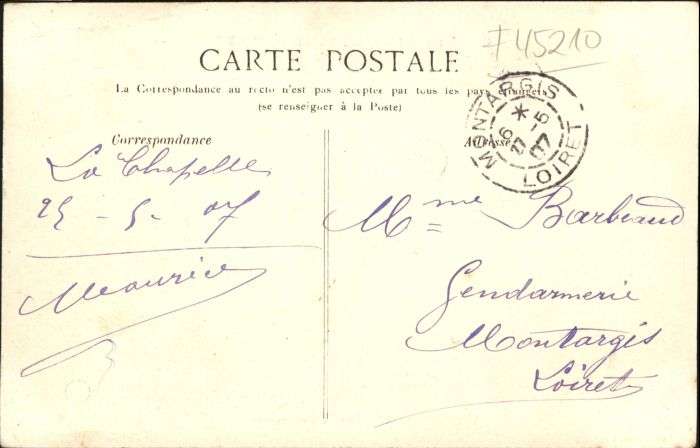 #45210
CARTE POSTALE
La Correspondance au recto n'est pas acceptée par tous les pays étrangers
(se renseigner à la Poste)
MONTARGIS
*
6
27 -5
07
LOIRET
Correspondance
Adresse
La Chapelle
25 - 5 - 07
Maurice
Mme Barbeaud
Gendarmerie
Montargis
Loiret